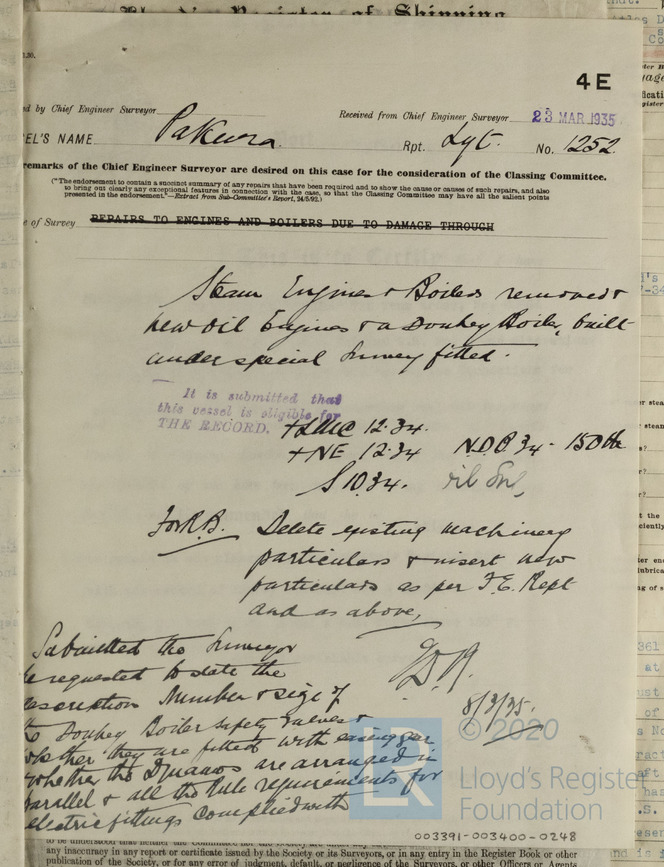 4 E
ed by Chief Engineer Surveyor
Received from Chief Engineer Surveyor 23 MAR. 1935
EL'S NAME Pakura. Rpt. Lyt. No. 1252
remarks of the Chief Engineer Surveyor are desired on this case for the consideration of the Classing Committee.
("The endorsement to contain a succinct summary of any repairs that have been required and to show the cause or causes of such repairs, and also
to bring out clearly any exceptional features in connection with the case, so that the Classing Committee may have all the salient points
presented in the endorsement."—Extract from Sub-Committee's Report, 24/5/92.)
e of Survey REPAIRS TO ENGINES AND BOILERS DUE TO DAMAGE THROUGH
Steam Engines & Boilers removed &
new oil Engines & a Donkey Boiler, built
under special Survey fitted.
It is submitted that
this vessel is eligible for
THE RECORD. +LMC 12.34.
+NE 12.34 N.D.B 34 - 150 lb
S 10.34. oil Eng,
For R.B. Delete existing machinery
particulars & insert new
particulars as per F.E. Rept
and as above,
Submitted the Surveyor
be requested to state the
description Number & size of
the Donkey Boiler safety valves &
whether they are fitted with easing gear
whether the Dynamos are arranged in
parallel & all the Rule requirements for
electric fittings complied with
8/3/35.
© 2020
Lloyd's Register
Foundation
003391-003400-0248
any inaccuracy in any report or certificate issued by the Society or its Surveyors, or in any entry in the Register Book or other
publication of the Society, or for any error of judgment, default, or negligence of the Surveyors, or other Officers or Agents